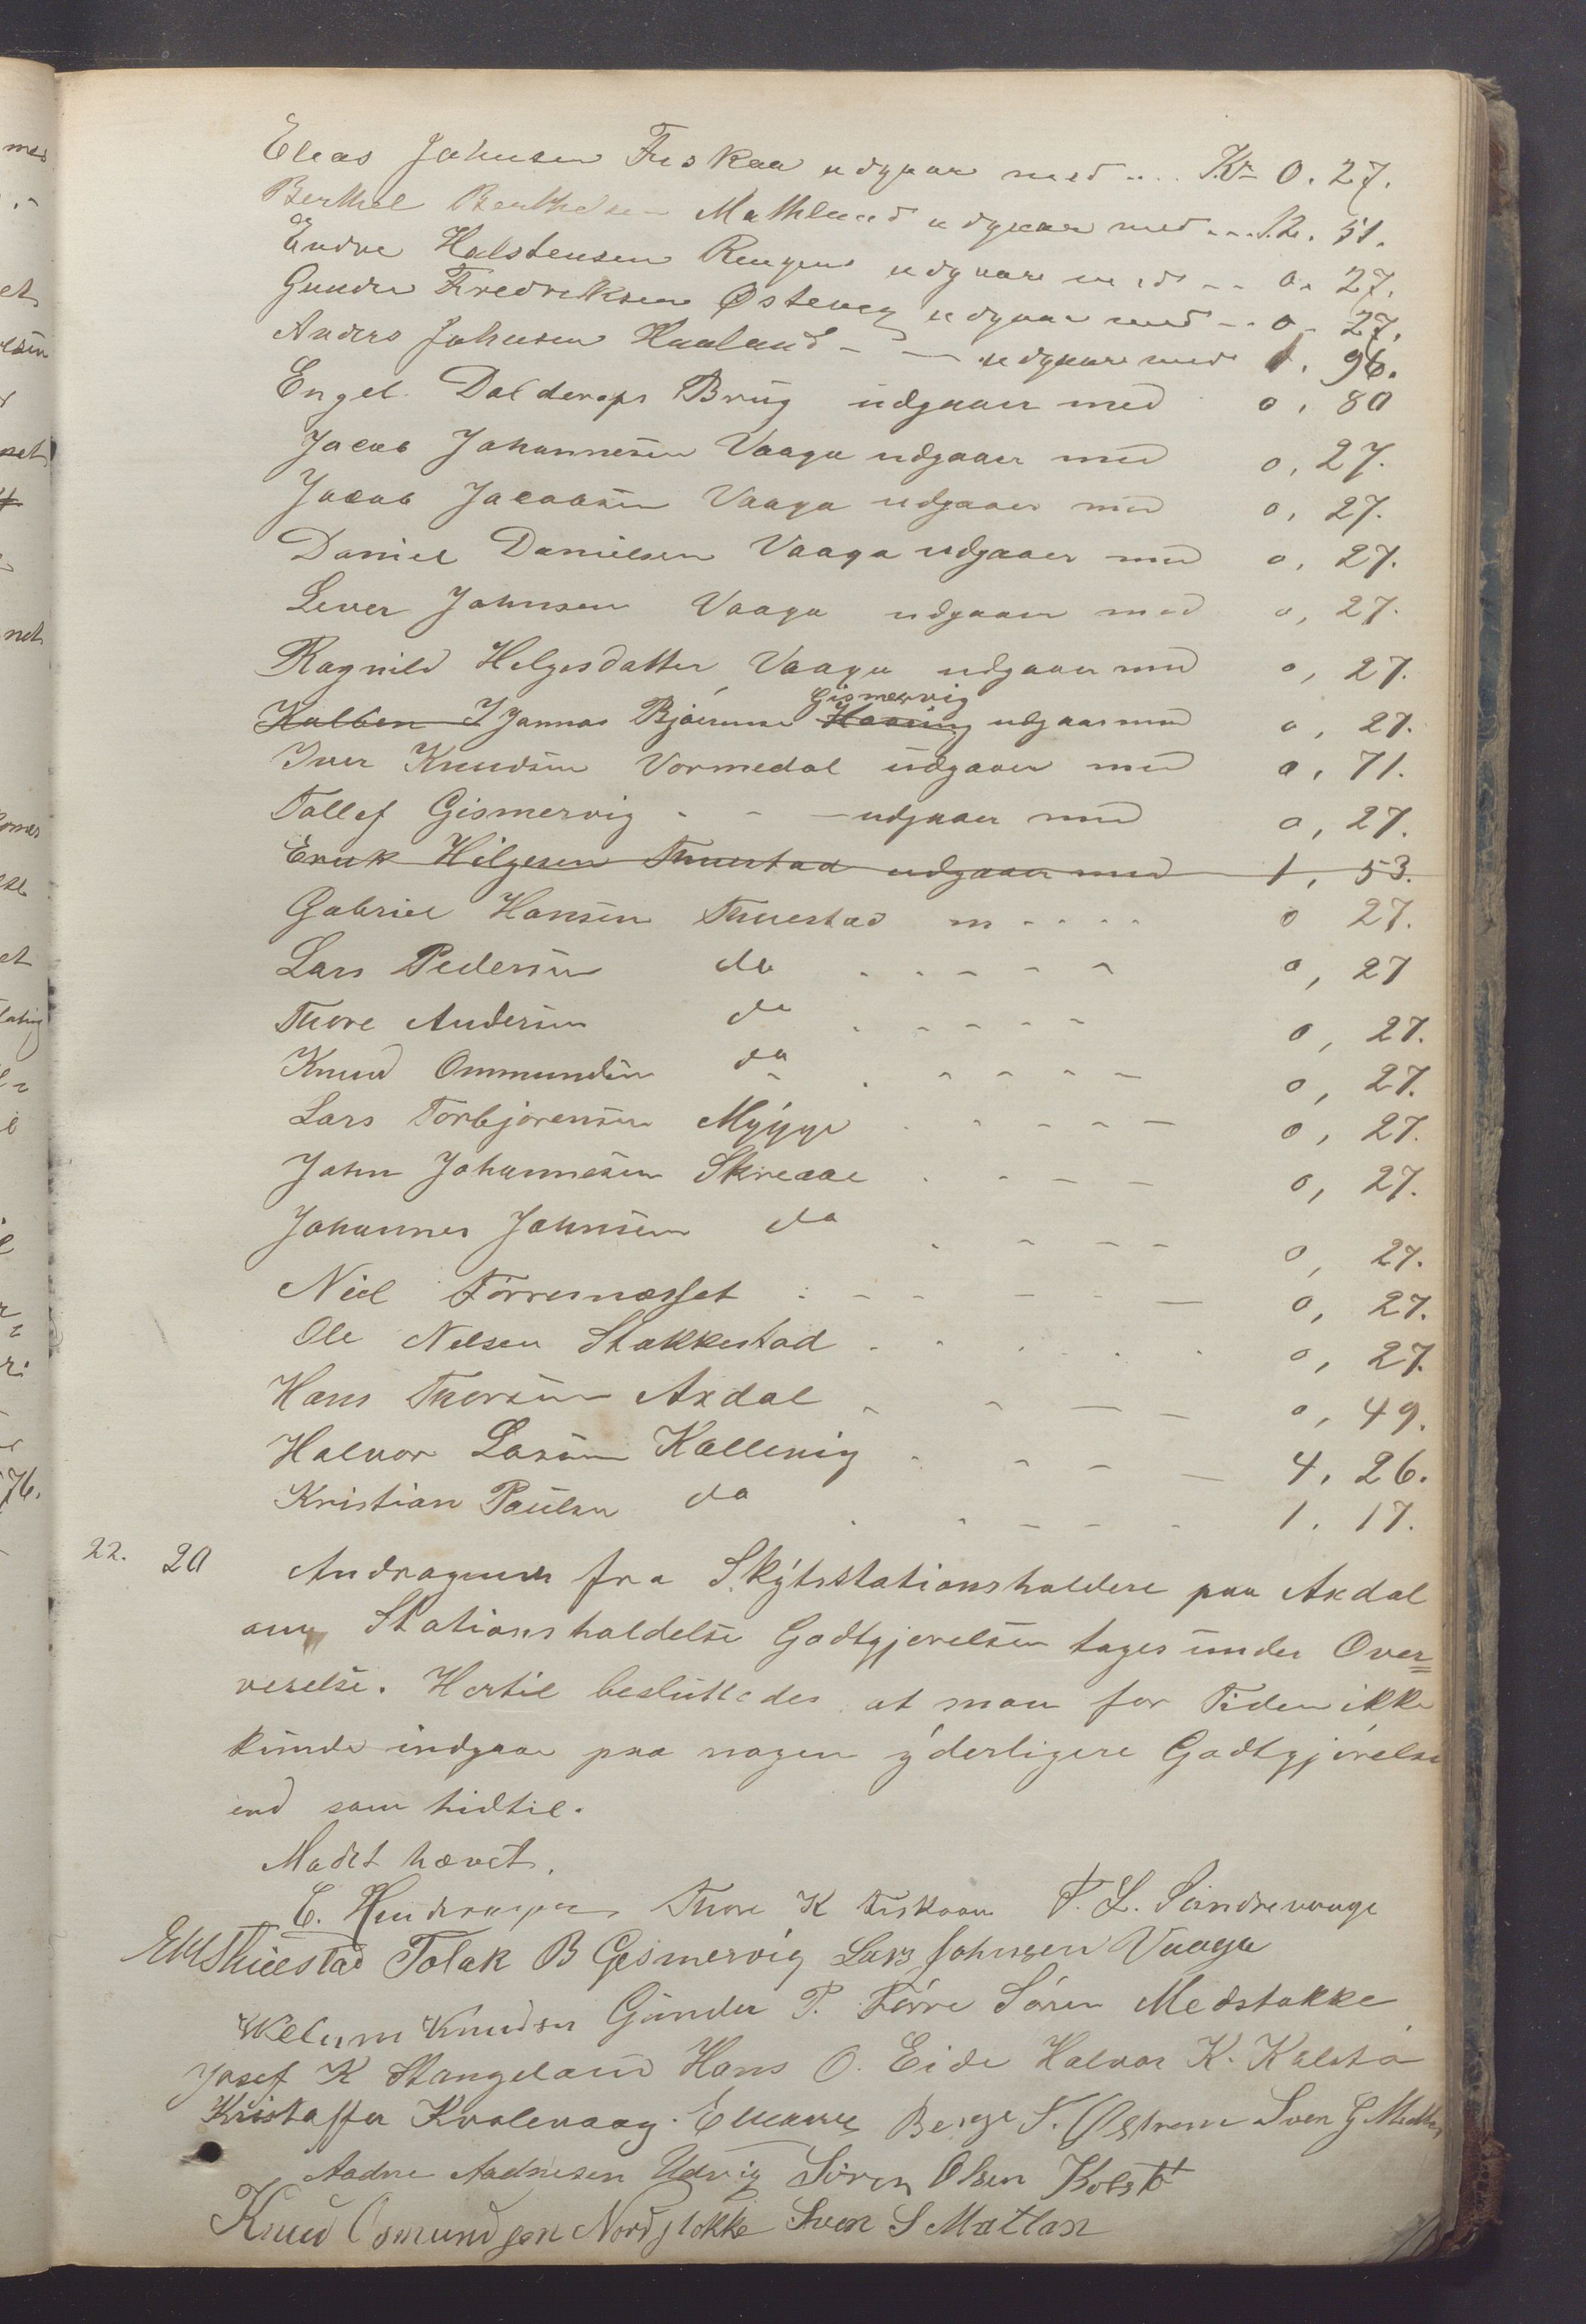 Elias Johnsen Fiskaa udgaar med ... Kr 0. 27.
Berthel Berthelsen Mathland udgaar med ... 12. 51.
Endre Halstensen udgaar med -- 0. 27.
Gunder Fredriksen Østeng udgaar med -- 0. 27.
Anders Johnsen Haaland - - udgaar med 1. 96.
Engel Dalderops Brug udgaaer med 0, 80
Jacob Johannesen Vaaga udgaaer med 0, 27.
Jacob Jacobsen Vaaga udgaaer med 0, 27.
Daniel Danielsen Vaaga udgaaer med 0, 27.
Lever Johnsen Vaaga udgaaer med 0, 27.
Ragnild Helgesdatter Vaaga udgaaer med 0, 27.
Gismervig
Jonnas Bjørnsen udgaar med 0, 27.
Iver Knudsen Vormedal udgaaer med 0, 71.
Tollef Gismervig - - - udgaaer med 0, 27.
Erik Helgesen Thuestad udgaaer med 1, 53.
Gabriel Hansen Thuestad m - - - - 0 27.
Lars Pedersen do - - - - - 0, 27
Thore Andersen do - - - - - 0, 27.
Knud Ommundsen do - - - - - 0, 27.
Lars Torbjørensen Mÿgge - - - - - 0, 27.
John Johannesen Skreaae - - - - 0, 27.
Johannes Johnsen do - - - - 0, 27.
Niel Førresnæsset - - - - - 0, 27.
Ole Nelsen Stakkestad - - - - - 0, 27.
Hans Thorsen Axdal - - - - 0, 49.
Halvor Larsen Kallevig - - - - 4, 26.
Kristian Paulsen do - - - - - 1. 17.
22. 20 Andragende fra Skÿtsstationsholdere paa Axdal
om Stationsholdelse Godtgjørelsen tages under Over=
veielse. Hertil besluttedes at man for Tiden ikke
kunde indgaa paa nogen ÿderligere Godtgjørelse
end som hidtil.
Mødet hævet.
C. Thore K Fiskaaa T. L. Søndrevaage
E H Thuestad Tolak B Gismervig Lars Johnsen Vaaga
Knudsen Gunder T. Førre Søren Medstokke
Josef K Stangeland Hans O. Eide Halvor K. Kolstø
Kristoffer Kvalevaag. Berge T. Østrem Sven G
Aadne Aadnesen Udvig Søren Olsen Kolstø
Knud Osmundsen Nordstokke Sven S Matlan